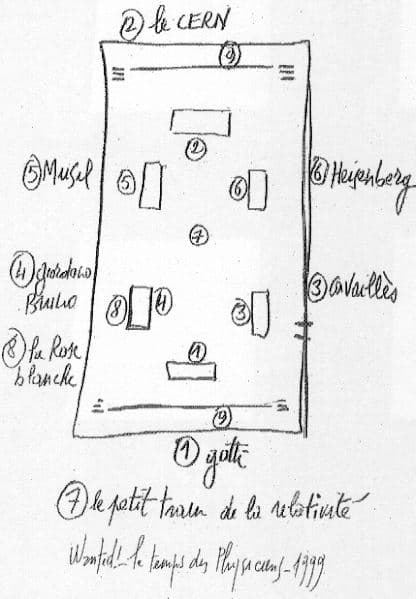 ② le CERN
⑨
②
⑤ Musil
⑤
⑥
⑥ Heisenberg
⑦
④ giordano
Bruno
⑧
④
③
③ Cavaillès
⑧ la Rose
blanche
①
⑨
① gatti
⑦ le petit train de la relativité
Wanted!_ le temps des Physiciens_1999